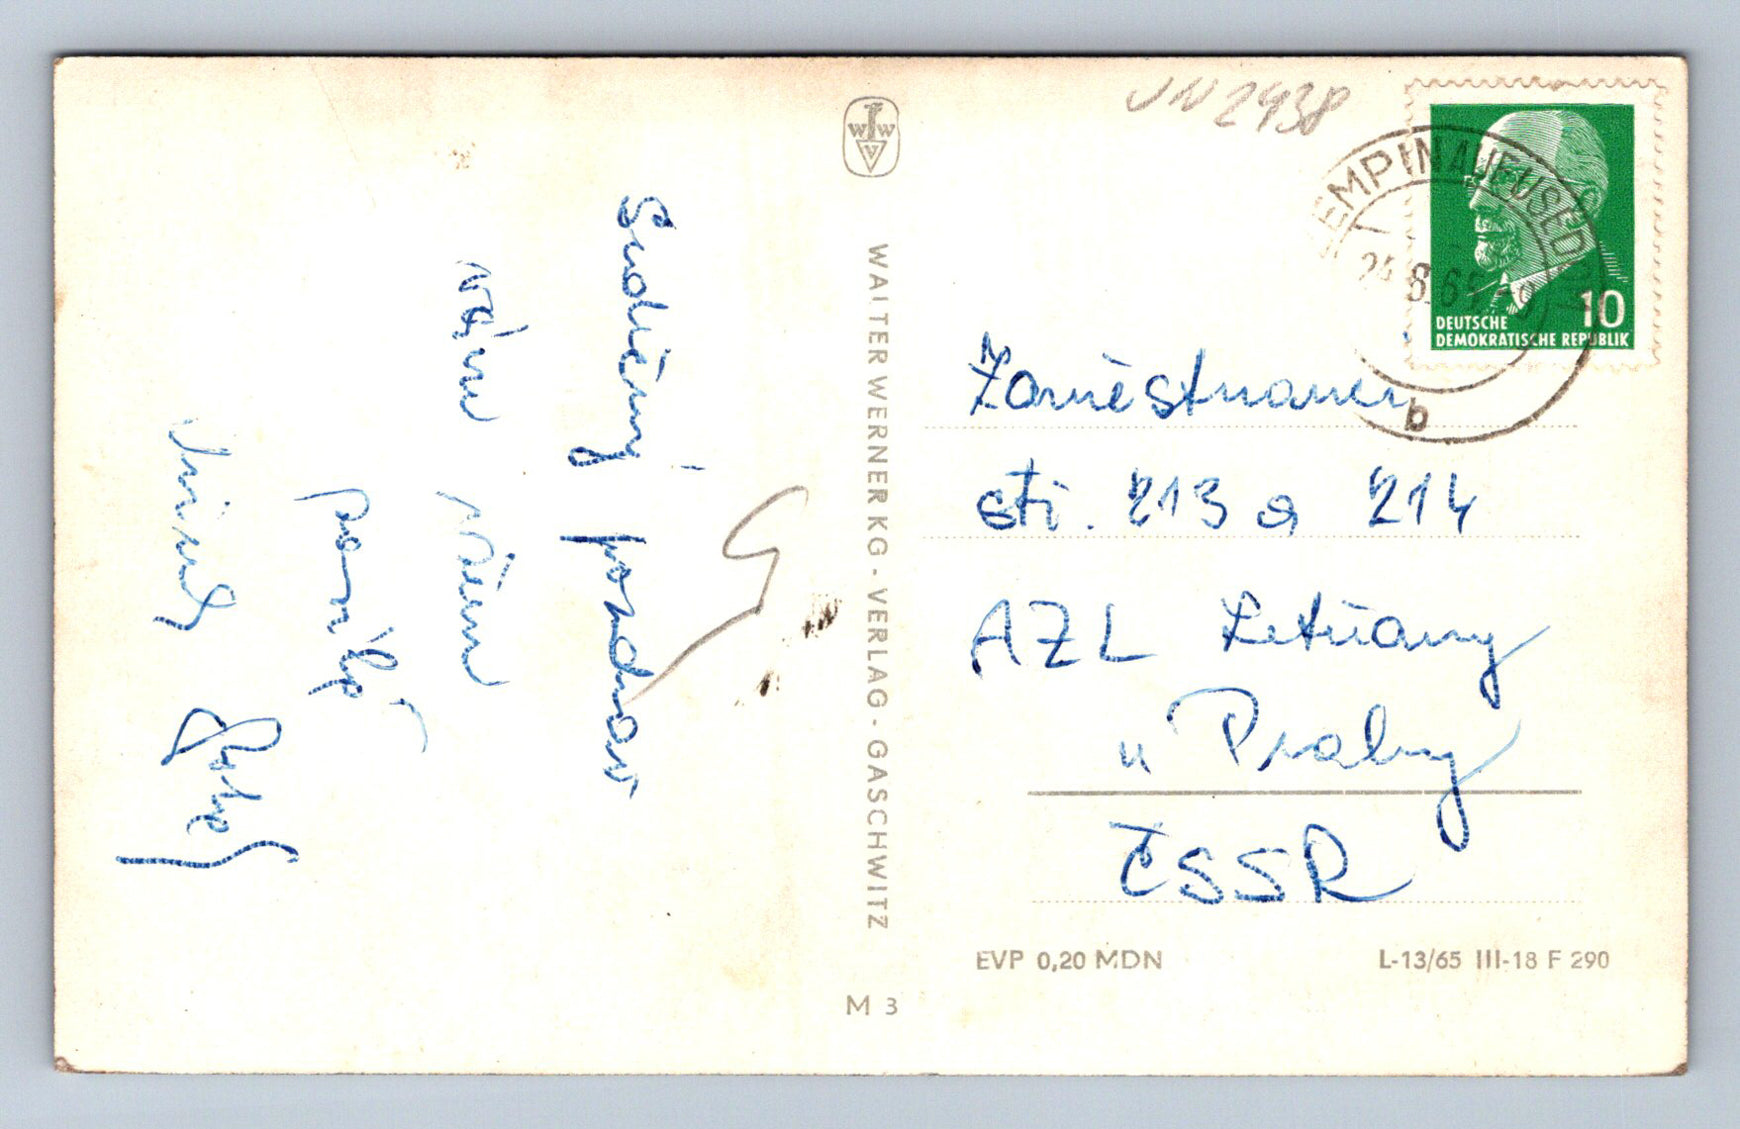 Srdečný pozdrav
vám všem
posílá
VN 2938
WWV
WALTER WERNER KG - VERLAG - GASCHWITZ
KEMPIN AUF USEDOM
24.8.65
b
10
DEUTSCHE
DEMOKRATISCHE REPUBLIK
Zaměstnanci
stř. 213 a 214
AZL Letňany
u Prahy
ČSSR
EVP 0,20 MDN
L-13/65 III-18 F 290
M 3